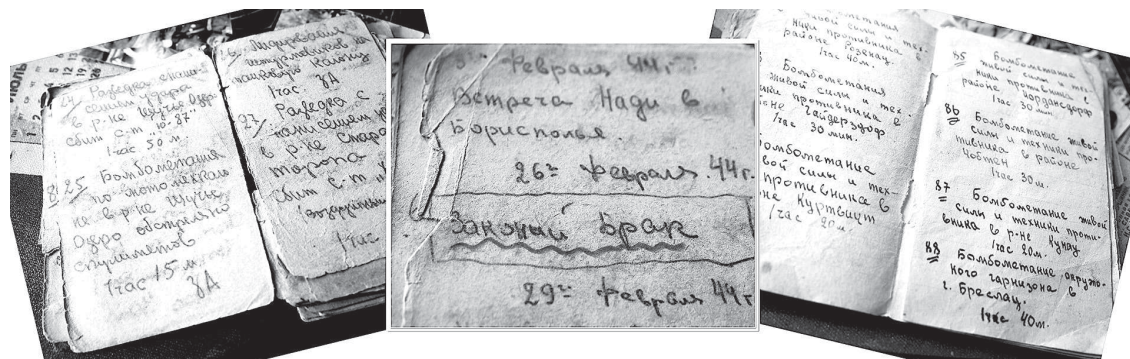 24/ Разведка с нане-
сением удара
в р-не Щучье Озер.
сбит с.т. "Ю-87"
1 час 50 м.
25/ Бомбометание
по мотомехколо
не в р-не Щучье
Озеро обстреляно
1 час 15 м
ЗА
штурмовиков на
танковую колону
1 час
ЗА
27/ Разведка с
нанесением
в р-не Старо
торопа
Сбит с.т.
1 час
Февраля 44 г.
Встреча Нади в
Борисполья.
26= Февраля 44г.
Законый Брак
29= февраля 44г
живой силы и тех-
ники противника
районе Розенау.
1 час 40 м.
Бомбометания
живой силы и тех-
ники противника в
1 час 30 мин.
Бомбометание
вой силы и тех-
противника в
не Куртвиц
1 час 20 м.
85 Бомбометание
живой силы и тех-
ники противника в
районе
1 час 30 мин.
86 Бомбометание живой
силы и техники про-
тивника в районе
Чобтен
1 час 30 м.
87 Бомбометание живой
силы и техники проти-
вника в р-не Кунау
1 час 20 м.
88 Бомбометание окруже-
ного гарнизона в
г. Бреслау.
1 час 40 м.